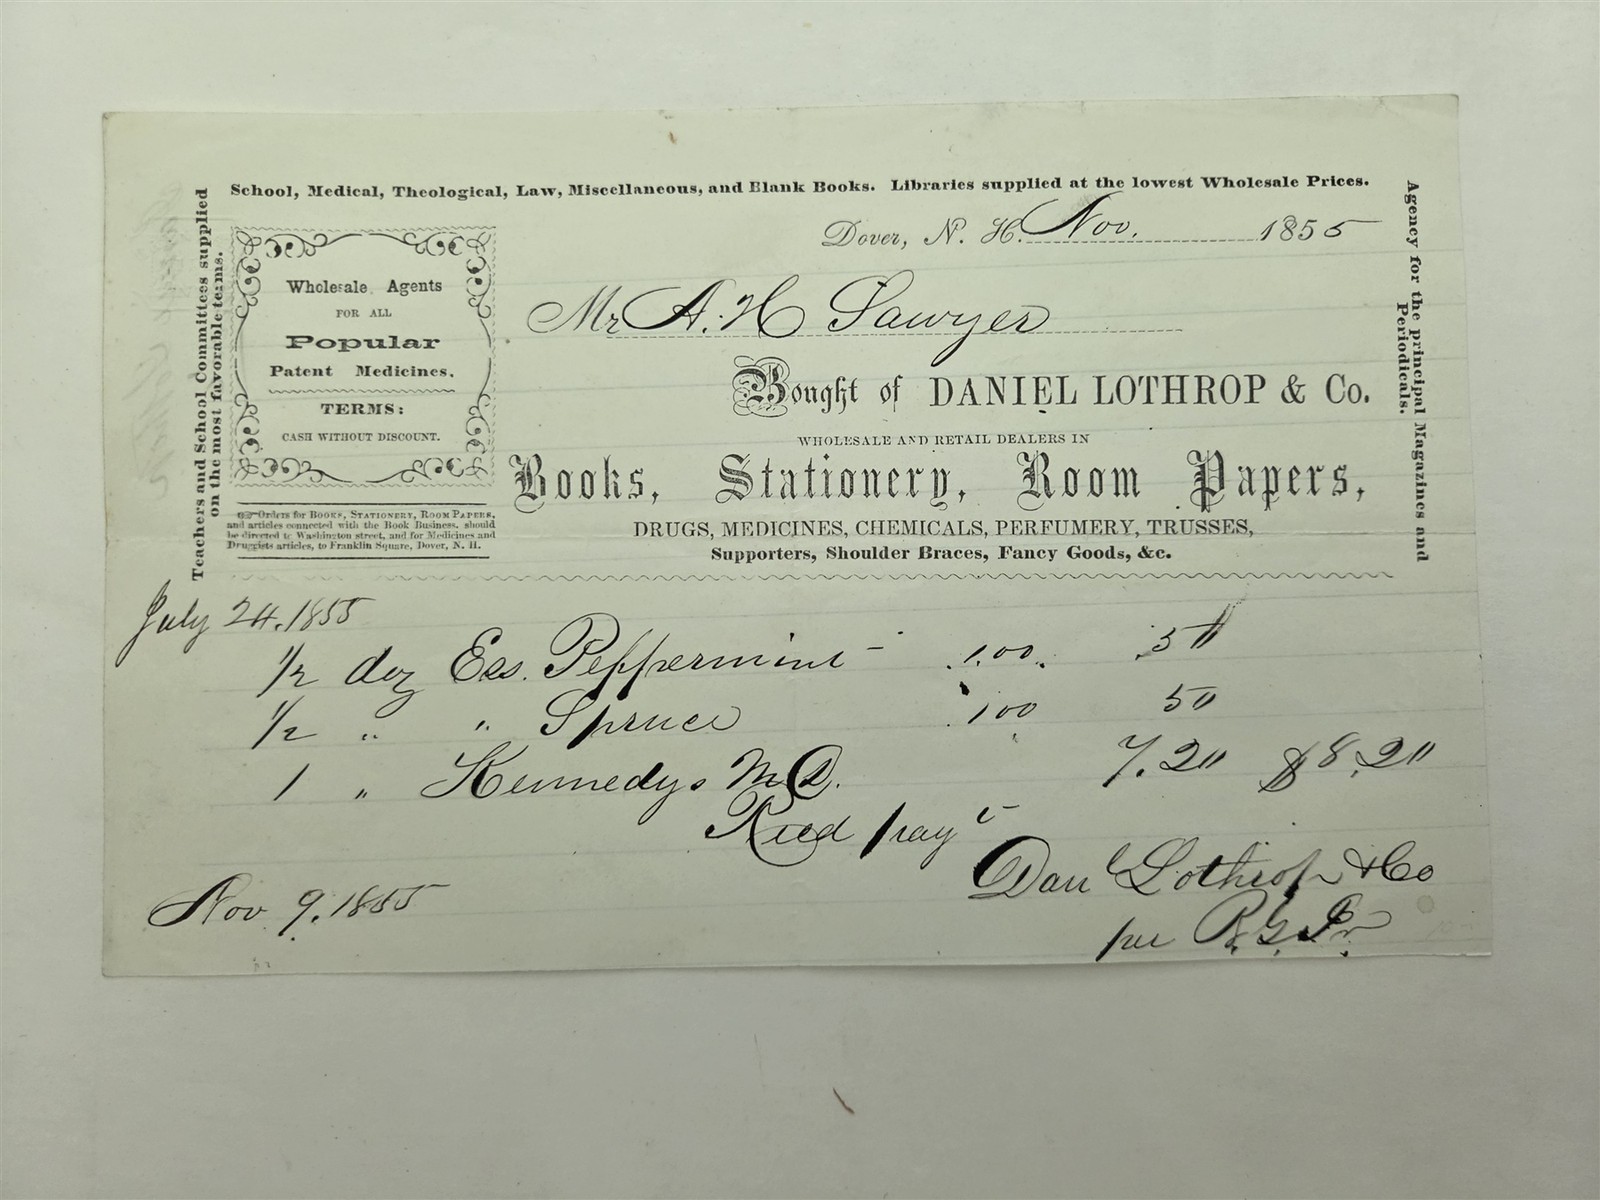 School, Medical, Theological, Law, Miscellaneous, and Blank Books. Libraries supplied at the lowest Wholesale Prices.
Teachers and School Committees supplied
on the most favorable terms.
Agency for the principal Magazines and
Periodicals.
Dover, N. H. Nov. 1855
Wholesale Agents
FOR ALL
Popular
Patent Medicines.
TERMS:
CASH WITHOUT DISCOUNT.
Orders for BOOKS, STATIONERY, ROOM PAPERS,
and articles connected with the Book Business, should
be directed to Washington street, and for Medicines and
Druggists articles, to Franklin Square, Dover, N. H.
Mr A. H Sawyer
Bought of DANIEL LOTHROP & Co.
WHOLESALE AND RETAIL DEALERS IN
Books, Stationery, Room Papers,
DRUGS, MEDICINES, CHEMICALS, PERFUMERY, TRUSSES,
Supporters, Shoulder Braces, Fancy Goods, &c.
July 24. 1855
1/2 doz Ess. Peppermint - 1.00. .50
1/2 " " Spruce .100 50
1 " Kennedys M D. 7.20 $8.20
Recd pay t
Danl Lothrop & Co
Nov 9. 1855
per R. G.